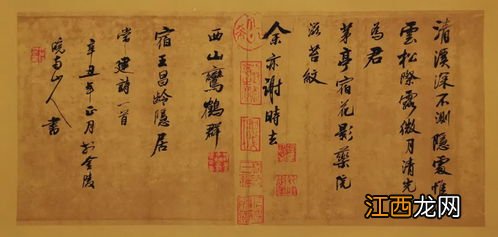 清溪深不測隱處惟
雲松際露微月清光
為君
茅亭宿花影藥院
滋苔紋
余亦謝時去
西山鸞鶴群
宿王昌齡隱居
常建詩一首
辛丑年正月於金陵
山人書
江西龙网